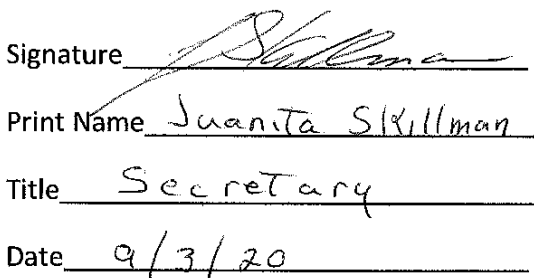 Signature J Skillman
Print Name Juanita Skillman
Title Secretary
Date 9/3/20